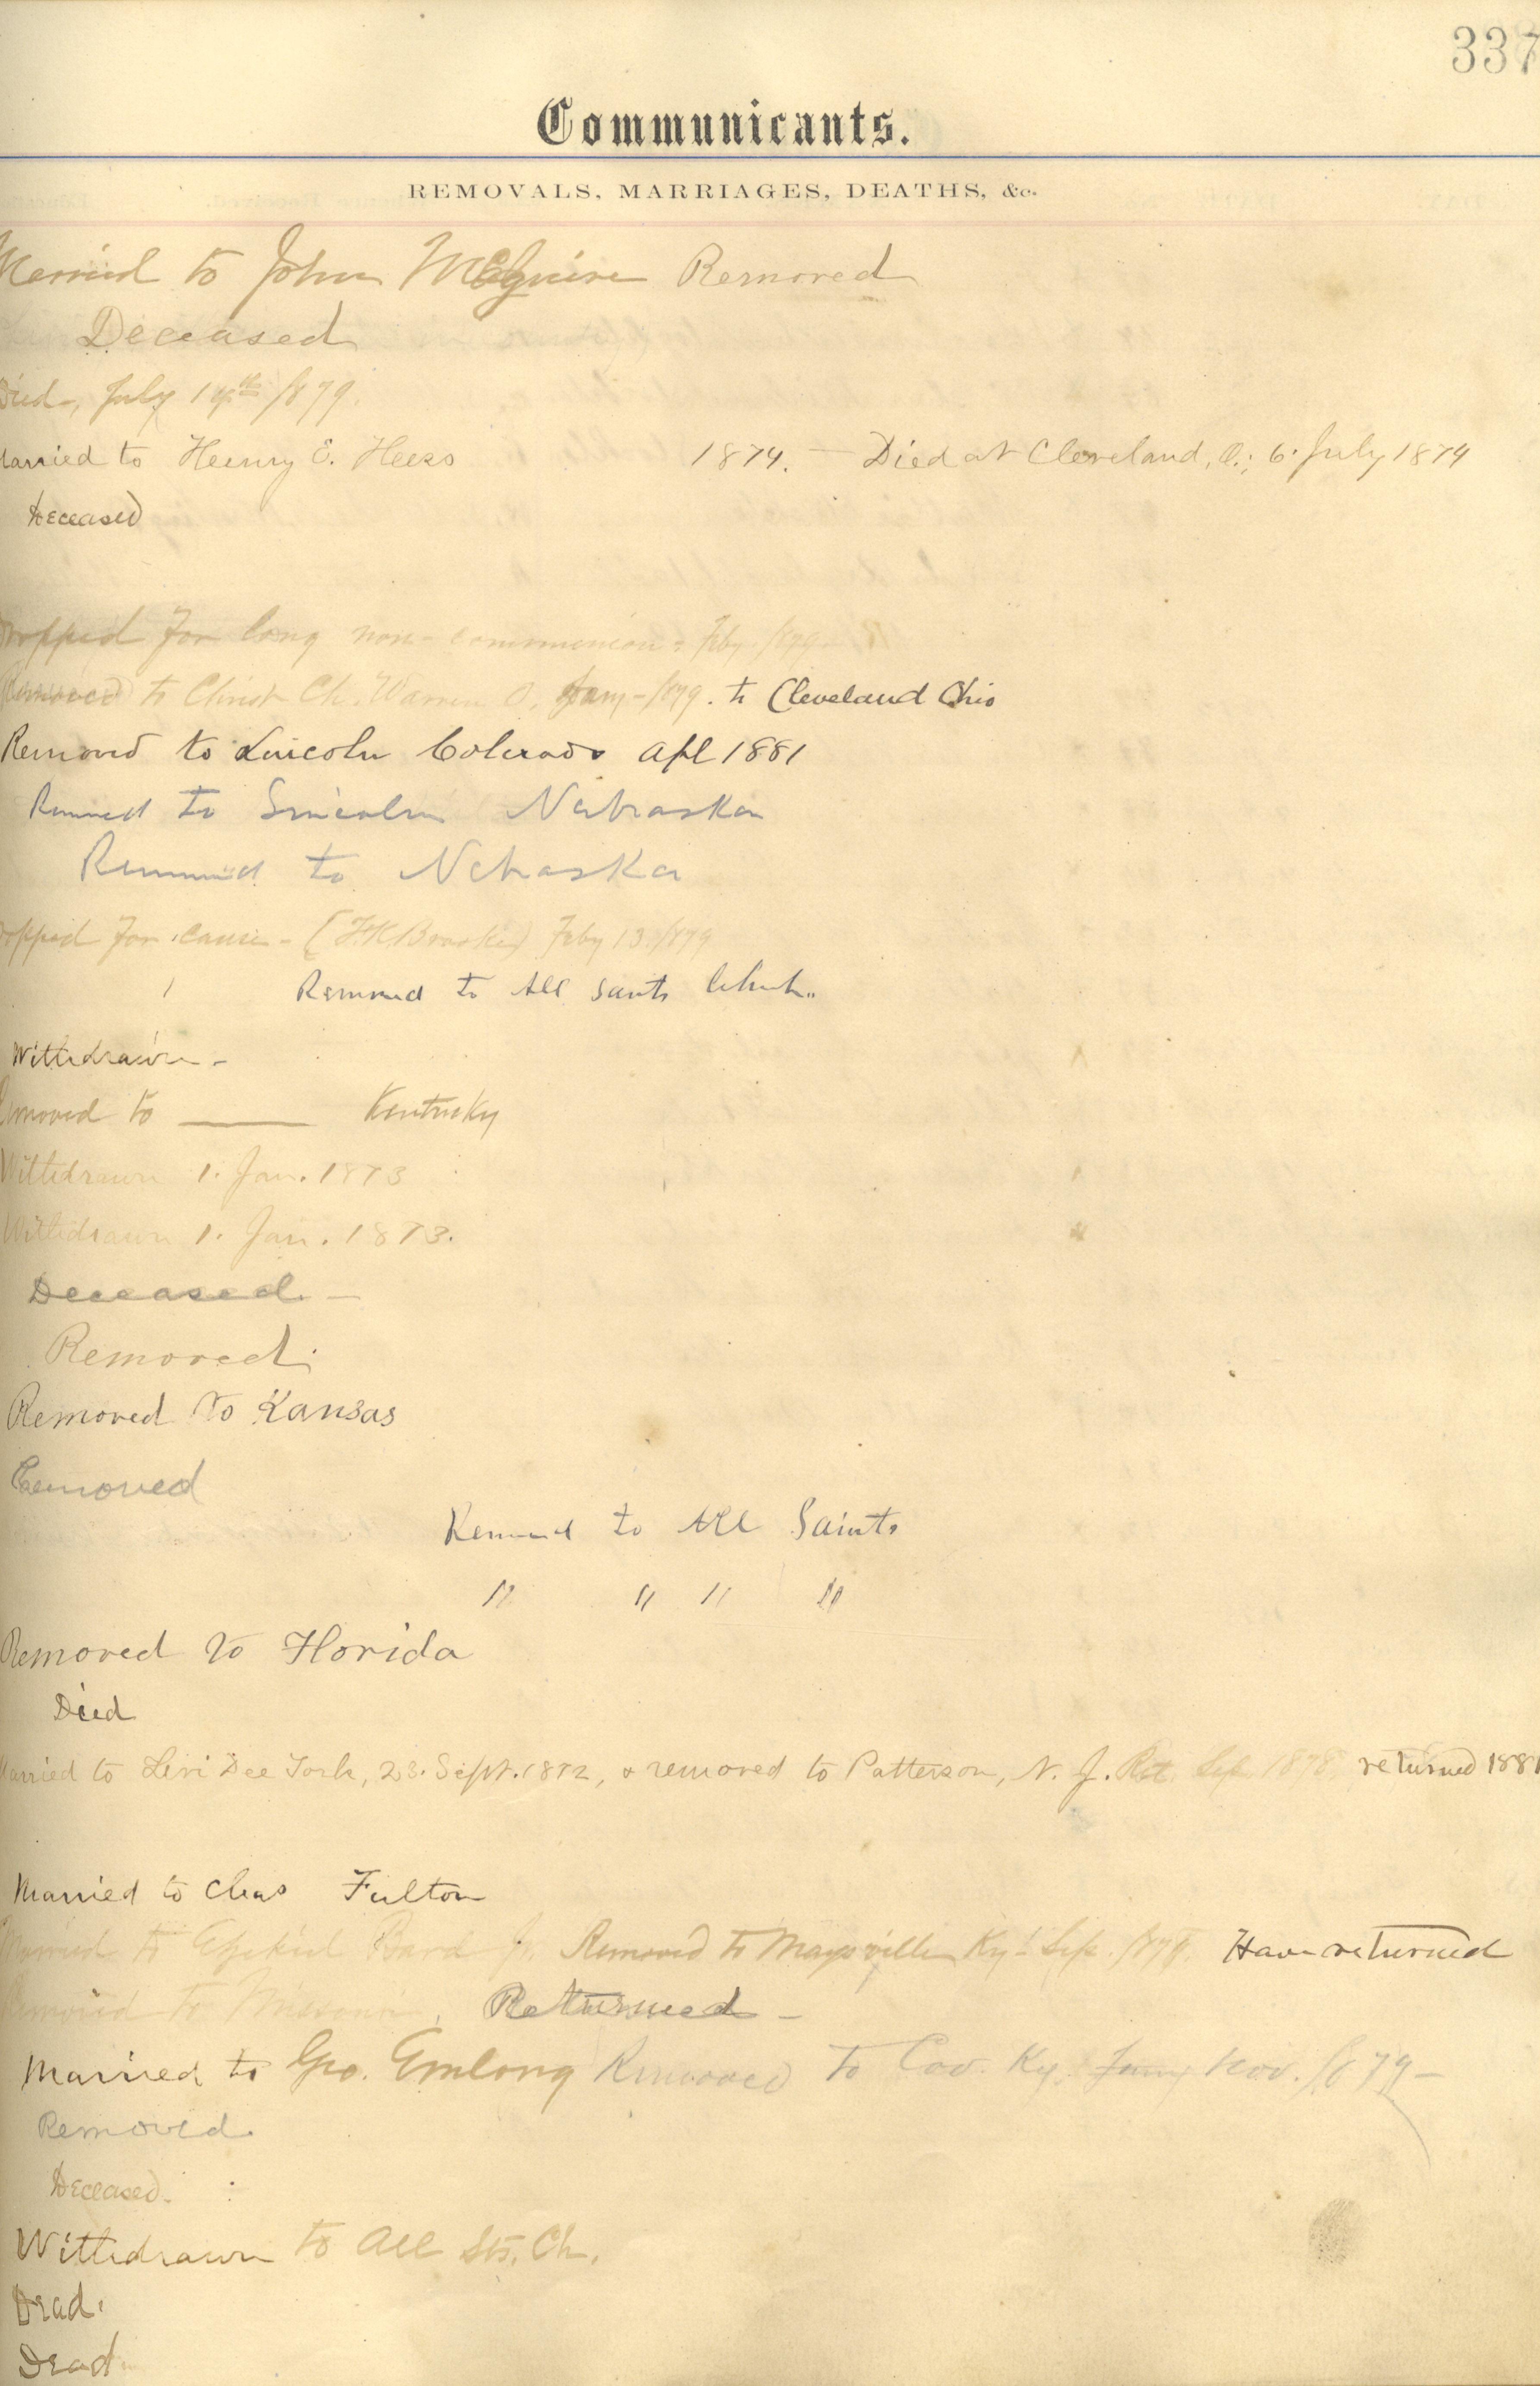 337
Communicants.
REMOVALS, MARRIAGES, DEATHS, &c.
Married to John McGuire Removed
Deceased
Died, July 14th /879.
Married to Henry E. Hees 1874. — Died at Cleveland, O.; 6. July 1874
Deceased
Dropped for long non-communion: Feby. /879
Removed to Christ Ch. Warren O. Jany-/879. to Cleveland Ohio
Removed to Lincoln Colorado Apl 1881
Removed to Lincoln Nebraska
Removed to Nebraska
Dropped for cause - (F.K. Brooke) Feby 13./879
Removed to All Saints Church..
Withdrawn -
Removed to ——— Kentucky
Withdrawn 1. Jan. 1873
Withdrawn 1. Jan. 1873.
Deceased. —
Removed.
Removed to Kansas
Removed
Removed to All Saints
" " " "
Removed to Florida
Died
Married to Levi Dee York, 23. Sept. 1872, & removed to Patterson, N. J. Ret. Sep. 1878 returned 1881
Married to Chas Fulton
Married to Ezekiel Bard Jr. Removed to Maysville Ky - Sep. /878. Have returned
Removed to Missouri. Returned -
Married to Geo. Emlong Removed to Cov. Ky. Jany Nov. /879 -
Removed.
Deceased.
Withdrawn to All Sts. Ch.
Dead.
Dead